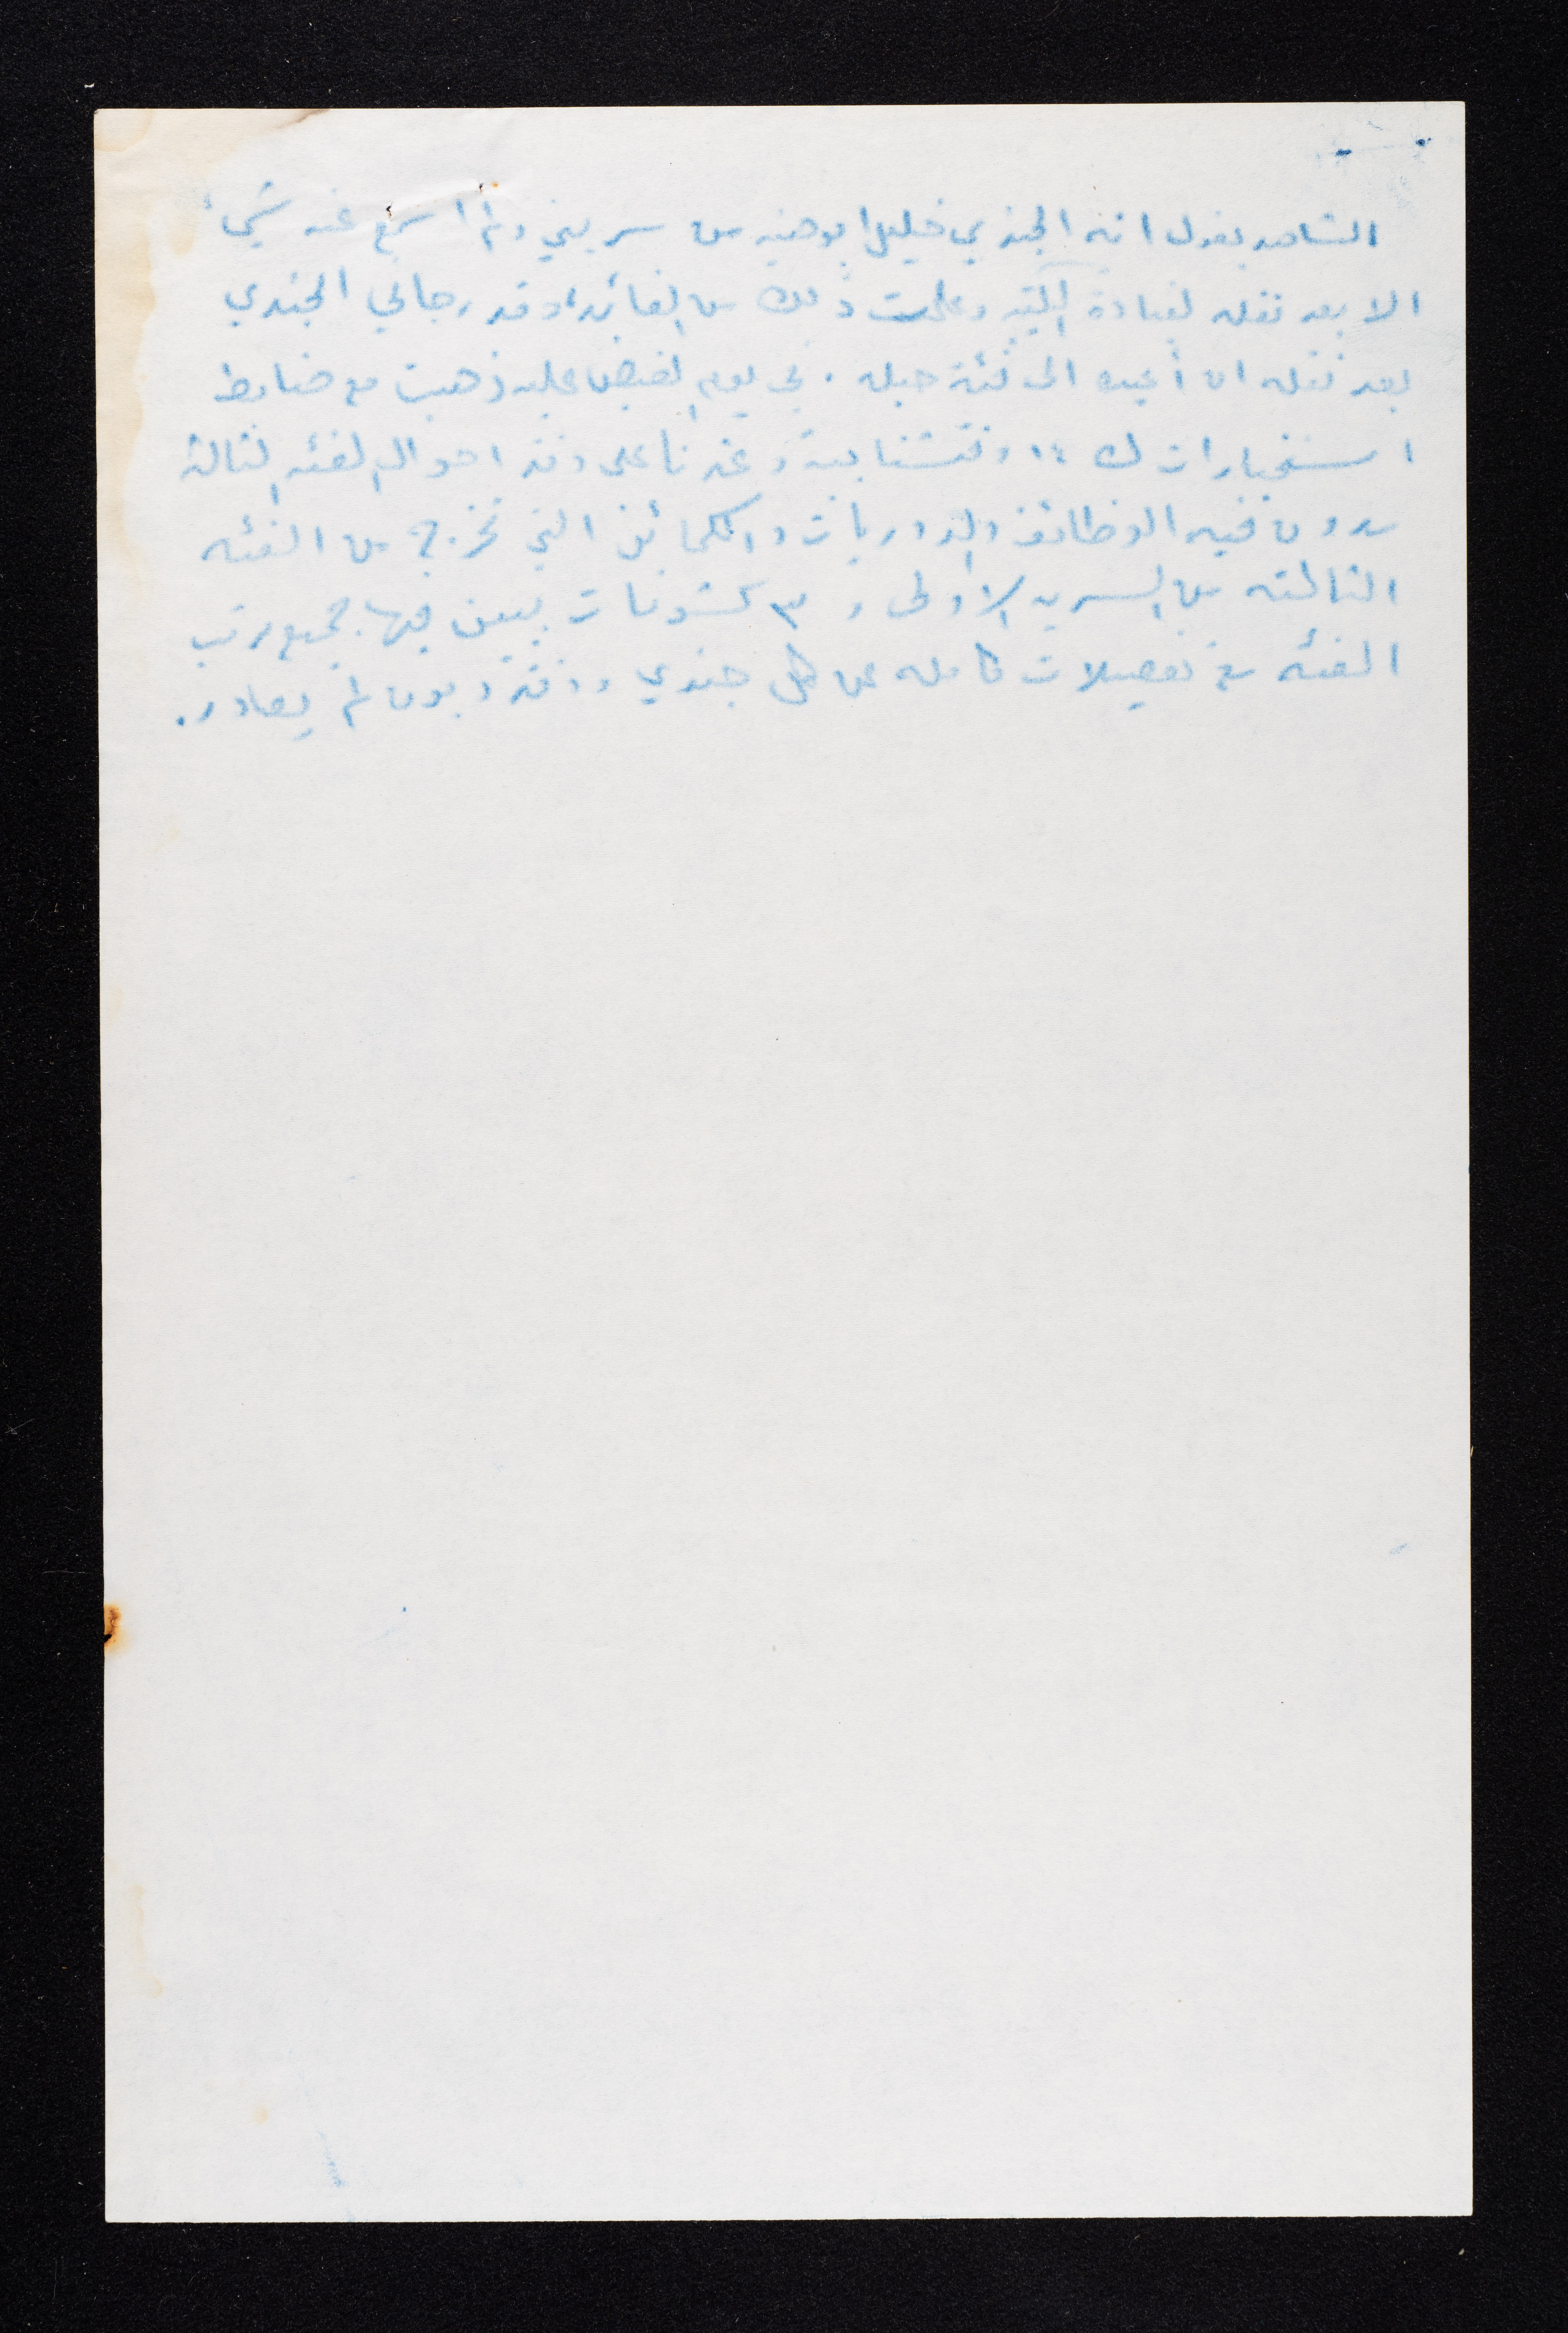 الشاهد يقول انه الجندي خليل ابو هنيه من سريتي ولم اسمع عنه شيئ
الا بعد نقله لقيادة الكتيبه وعلمت ذلك من القائد وقد رجاني الجندي
بعد نقله ان أعيده الى فئة جبله . في يوم القبض عليه ذهبت مع ضابط
استخبارات ك ١٤ وفتشنا بيته وعثرنا على دفتر احوال الفئه الثالثة
مدون فيه الوظائف والدوريات والكمائن التي تخرج من الفئه
الثالثه من السريه الاولى و ٣ كشوفات يبين فيها جميع مرتب
الفئه مع تفصيلات كامله عن كل جندي ودفتر ديون لم يصادر .